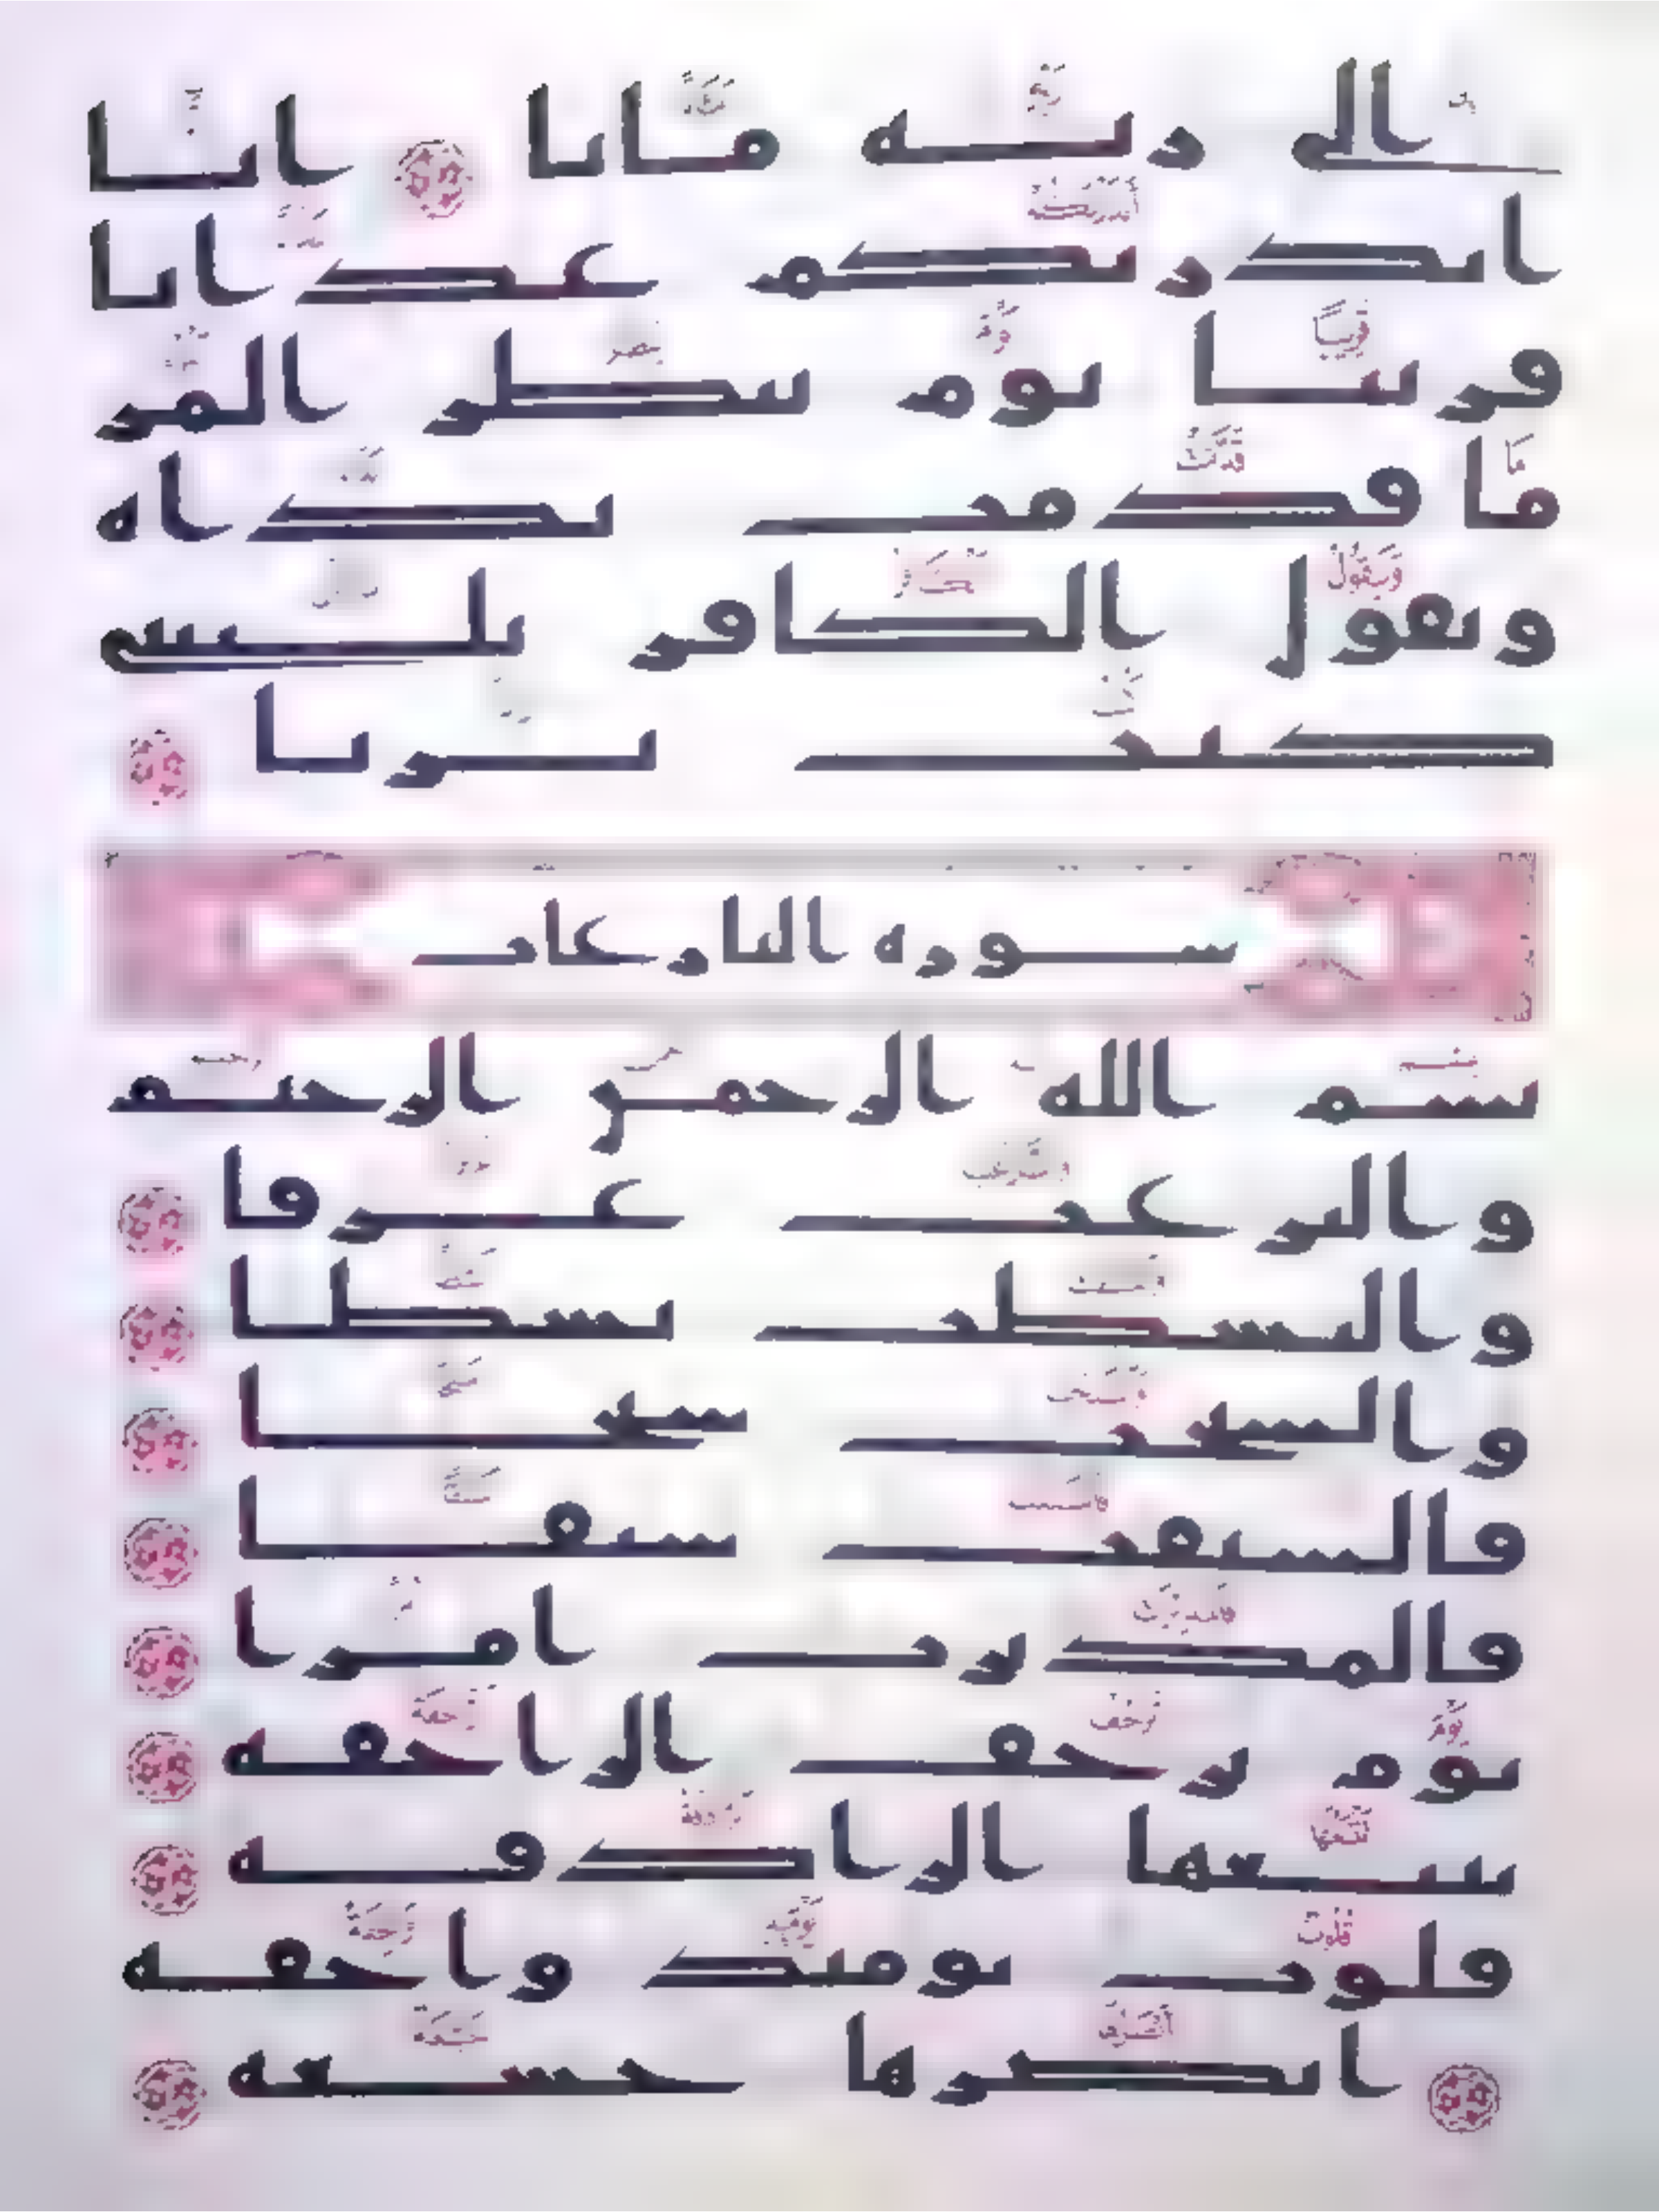 الى ربه مابا انا
انذرنكم عذابا
قريبا يوم ينظر المر
ما قدمت يداه
ويقول الكافر يليتني
كنت تربا
سورة النازعات
بسم الله الرحمن الرحيم
والنزعت غرقا
والنشطت نشطا
والسبحت سبحا
فالسبقت سبقا
فالمدبرت امرا
يوم ترجف الراجفة
تتبعها الرادفة
قلوب يومئذ واجفة
ابصرها خشعة